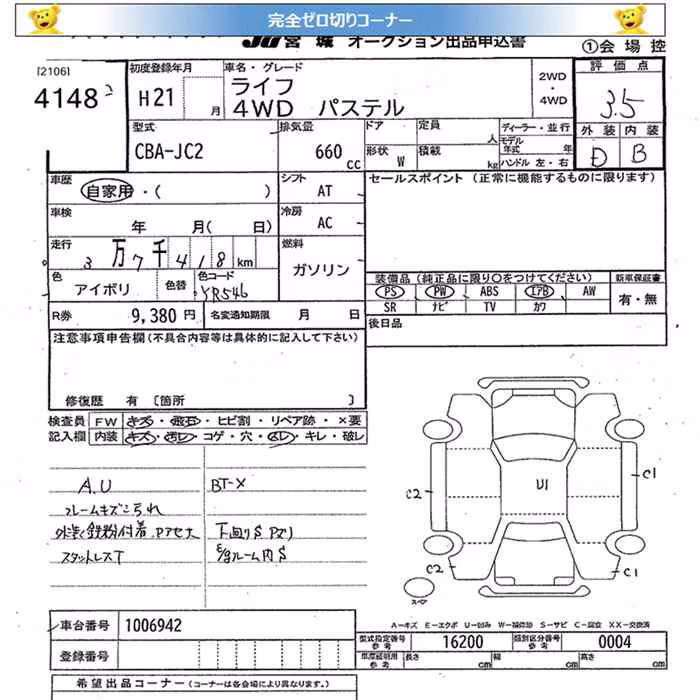 完全ゼロ切りコーナー
JU宮城 オークション出品申込書 ①会場控
[2106]
4148
初度登録年月 車名・グレード 2WD・4WD 評価点
H21 月 ライフ
4WD パステル 3.5
型式 排気量 ドア 定員 人 ディーラー・並行 外装 内装
CBA-JC2 660 cc 形状 W 積載 kg モデル年式 年 ハンドル 左・右 D B
車歴 自家用・( ) シフト AT セールスポイント (正常に機能するものに限ります)
車検 年 月( 日) 冷房 AC
走行 3万7千418km 燃料 ガソリン
色 アイボリ 色替 色コード YR546
装備品 (純正品に限り○をつけてください) 新車保証書
PS PW ABS エアB AW 有・無
SR ナビ TV カワ
R券 9,380円 名変通知期限 月 日 後日品
注意事項申告欄 (不具合内容等は具体的に記入して下さい)
修復歴 有 [箇所 ]
検査員 FW キズ・飛石・ヒビ割・リペア跡・×要
記入欄 内装 キズ・汚レ・コゲ・穴・・キレ・破レ
A.U BT-X
フレームキズこられ
鉄粉付着 下回りS
スタットレスT ルーム内S
U1
C1
C2
C2
C1
スペア
A-キズ E-エクボ U-凹み W-補修跡 S-サビ C-腐食 XX-交換済
車台番号 1006942 型式指定番号 参考 16200 類別区分番号 参考 0004
登録番号 車庫証明用 参考 長さ cm 幅 cm 高さ cm
希望出品コーナー (コーナーは各会場により異なります。)